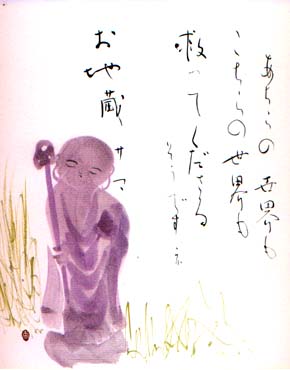 あちらの世界も
こちらの世界も
救ってくださる
そうですネ
お地蔵サマ